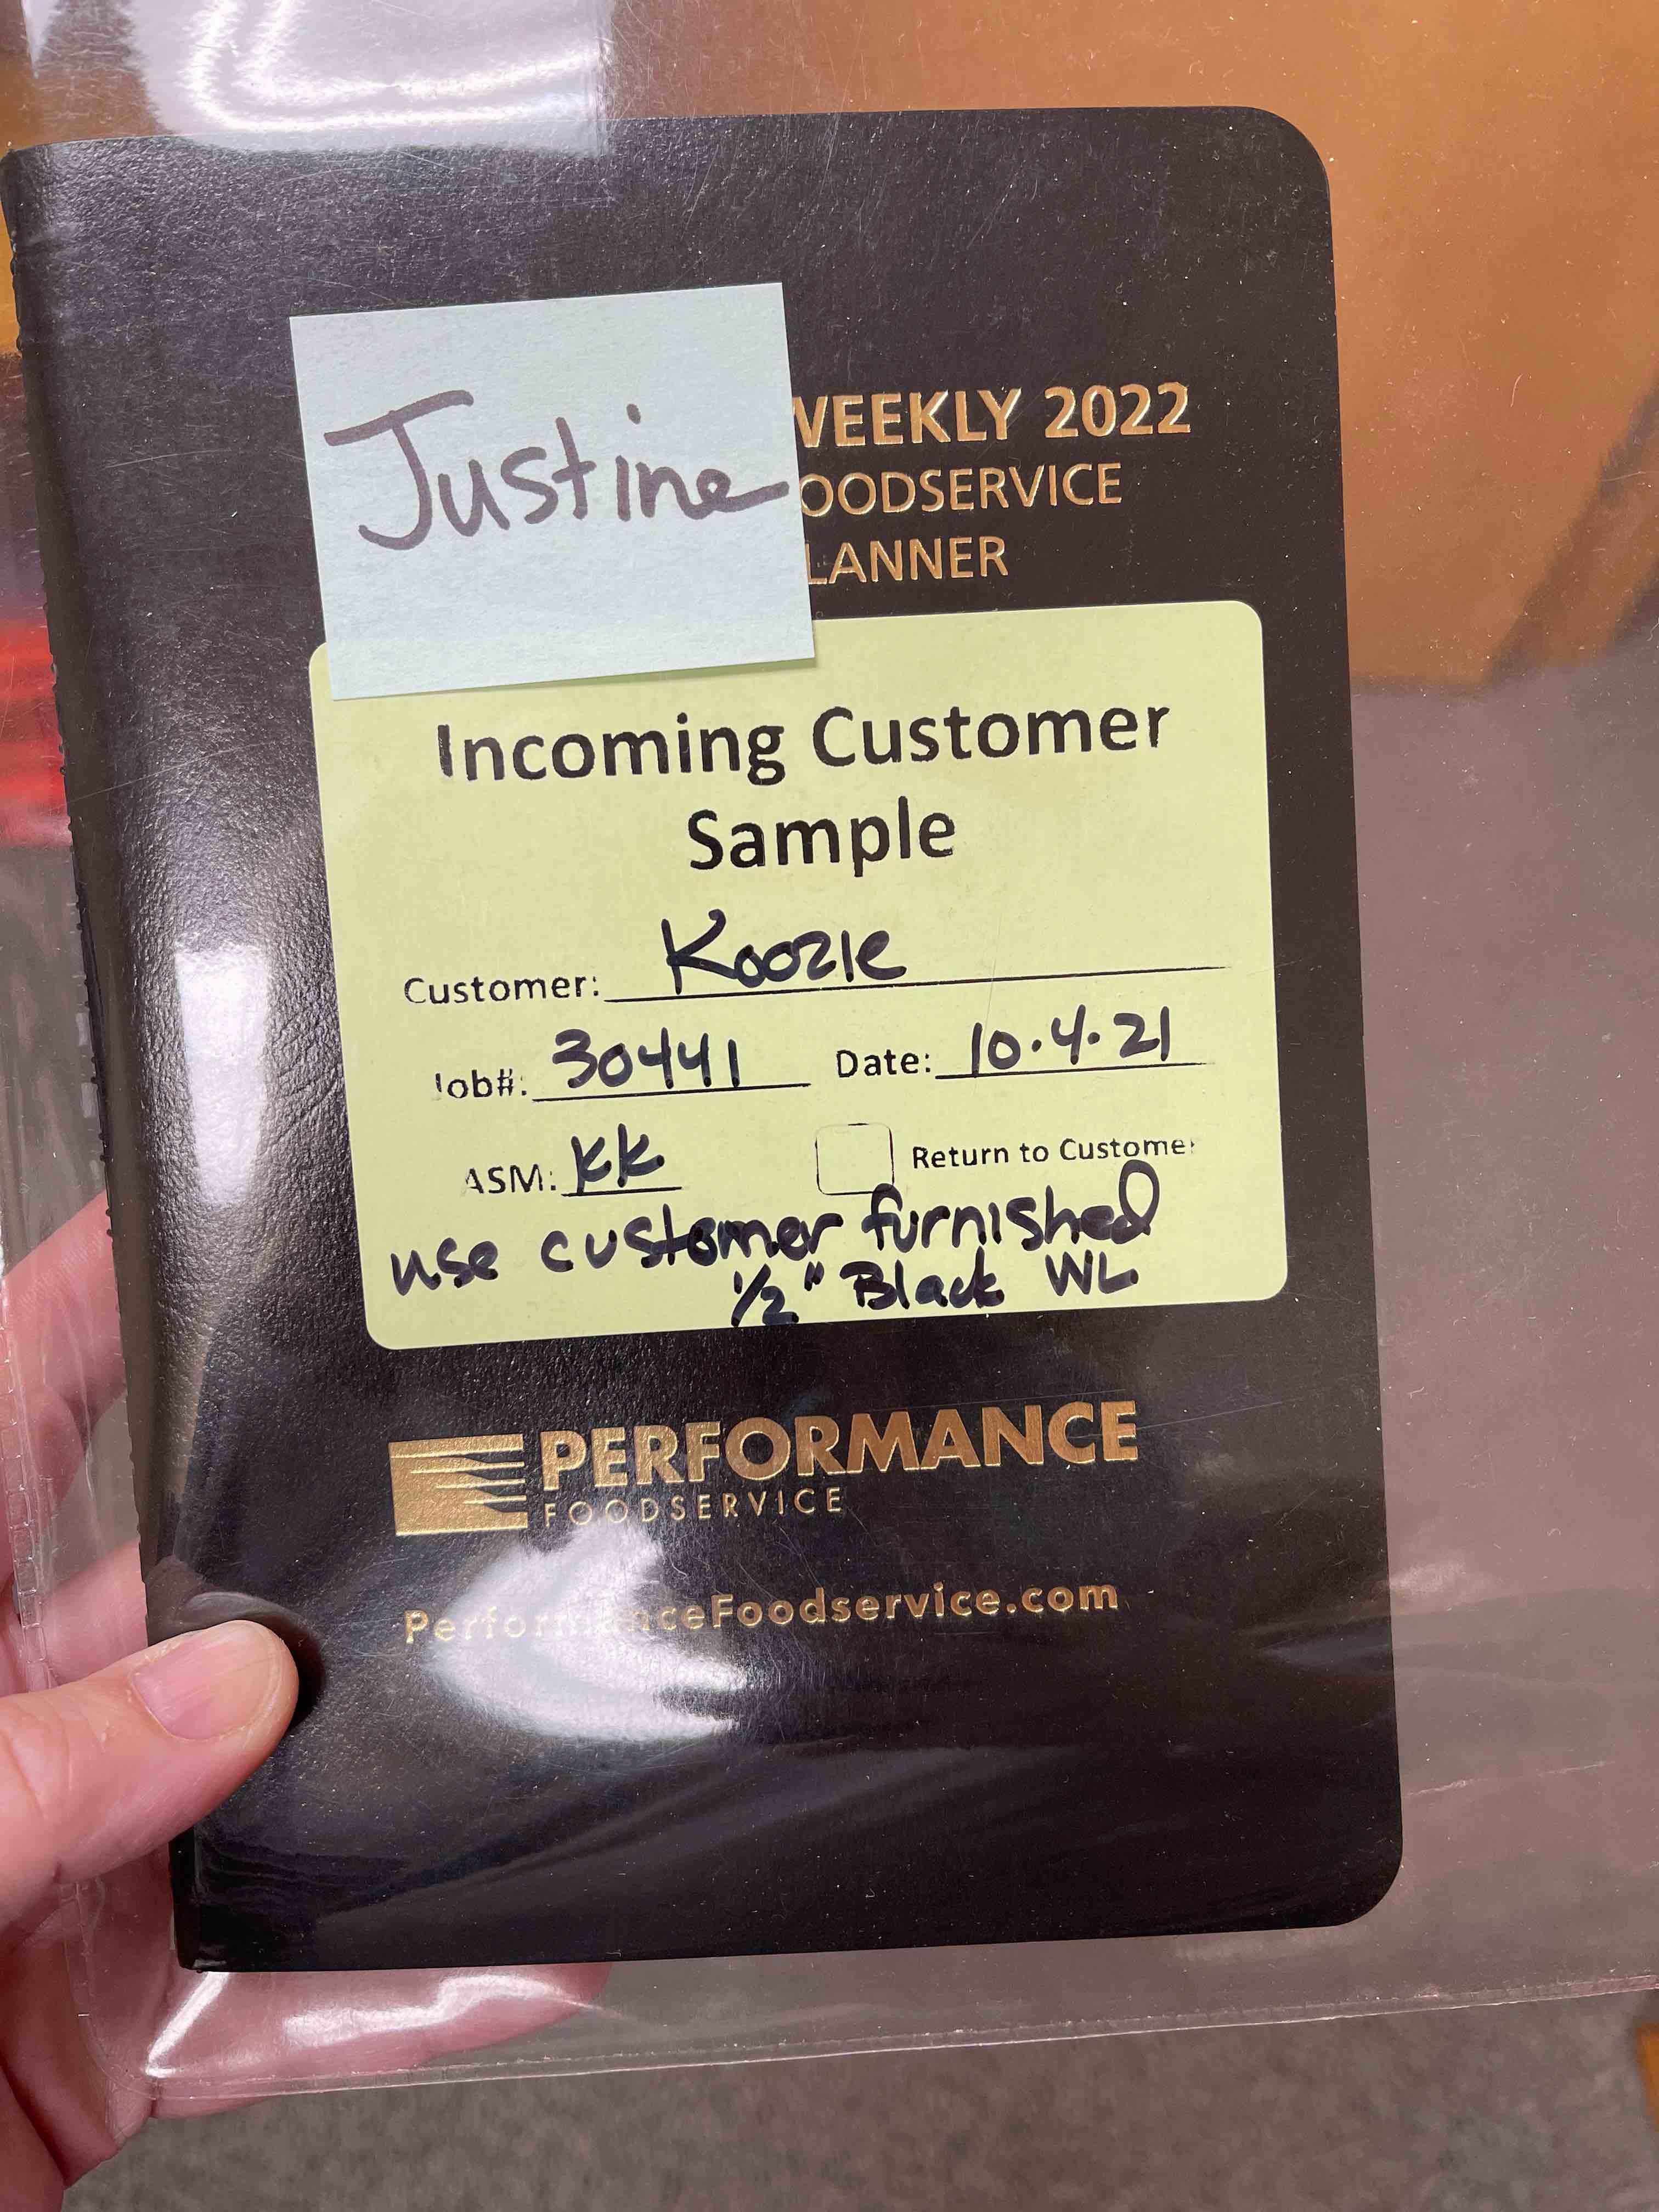 Justine
WEEKLY 2022
OODSERVICE
LANNER
Incoming Customer
Sample
Customer: Koozie
Job#: 30441 Date: 10.4.21
ASM: KK Return to Customer
use customer furnished
1/2" Black WL
PERFORMANCE
FOODSERVICE
PerformanceFoodservice.com